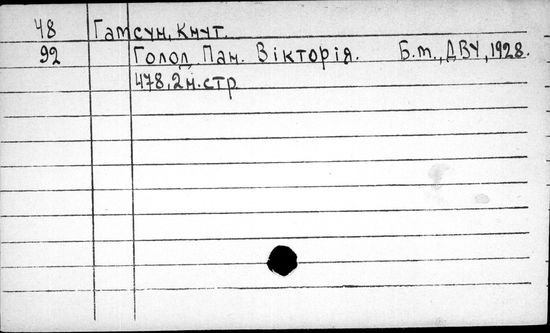 48 Гамсун, Кнут.
92 Голод. Пан. Вікторія. Б.м., ДВУ, 1928.
478, 2 н. стр